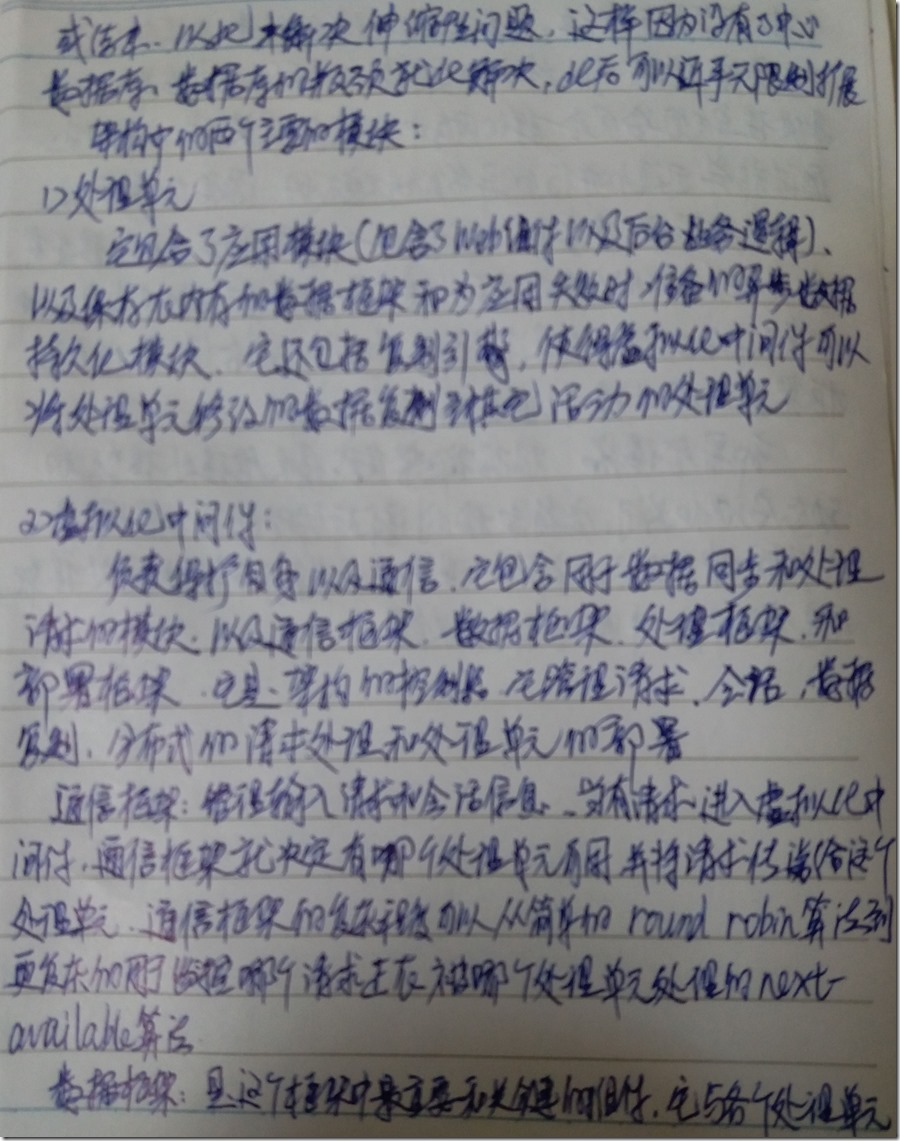 或结束、以此来解决伸缩性问题。这样因为没有了中心
数据库、数据库的瓶颈就此解决,此后可以近乎无限制扩展
架构中的两个主要的模块:
1>处理单元
它包含了应用模块(包含了Web组件以及后台业务逻辑)、
以及保存在内存的数据框架和为应用失效时准备的异步数据
持久化模块、它还包括复制引擎,使得虚拟化中间件可以
将处理单元修改的数据复制到其它活动的处理单元
2>虚拟化中间件:
负责维护自身以及通信、它包含用于数据同步和处理
请求的模块、以及通信框架、数据框架、处理框架、和
部署框架、它是架构的控制器、它管理请求、会话、数据
复制、分布式的请求处理和处理单元的部署
通信框架:管理输入请求和会话信息、当有请求进入虚拟化中
间件、通信框架就决定有哪个处理单元可用并将请求传递给这个
处理单元、通信框架的复杂程度可以从简单的round robin算法到
更复杂的用于监控哪个请求正在被哪个处理单元处理的next-
available算法
数据框架:是这个框架中最重要和关键的组件、它与各个处理单元